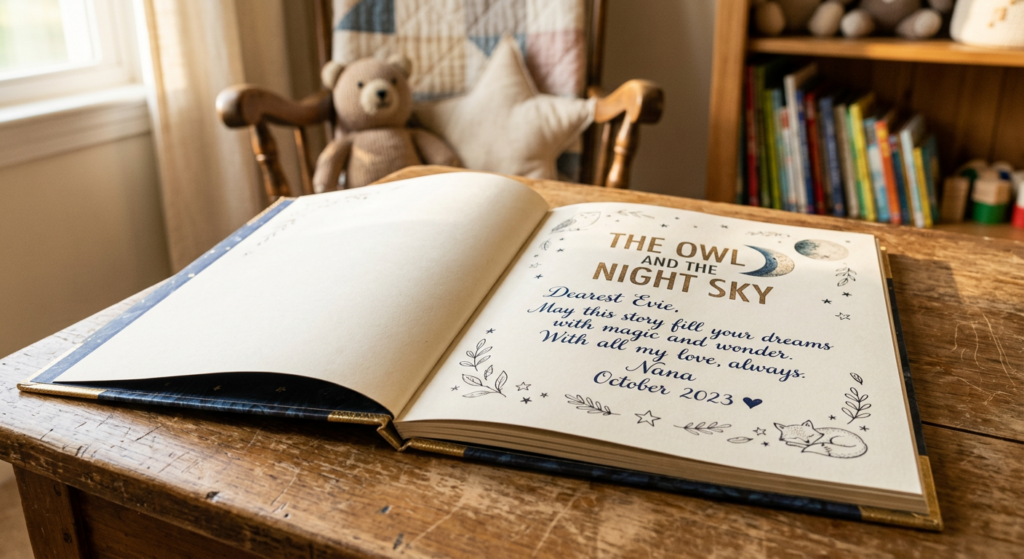 THE OWL
AND THE
NIGHT SKY
Dearest Evie,
May this story fill your dreams
with magic and wonder.
With all my love, always.
Nana
October 2023 ♥